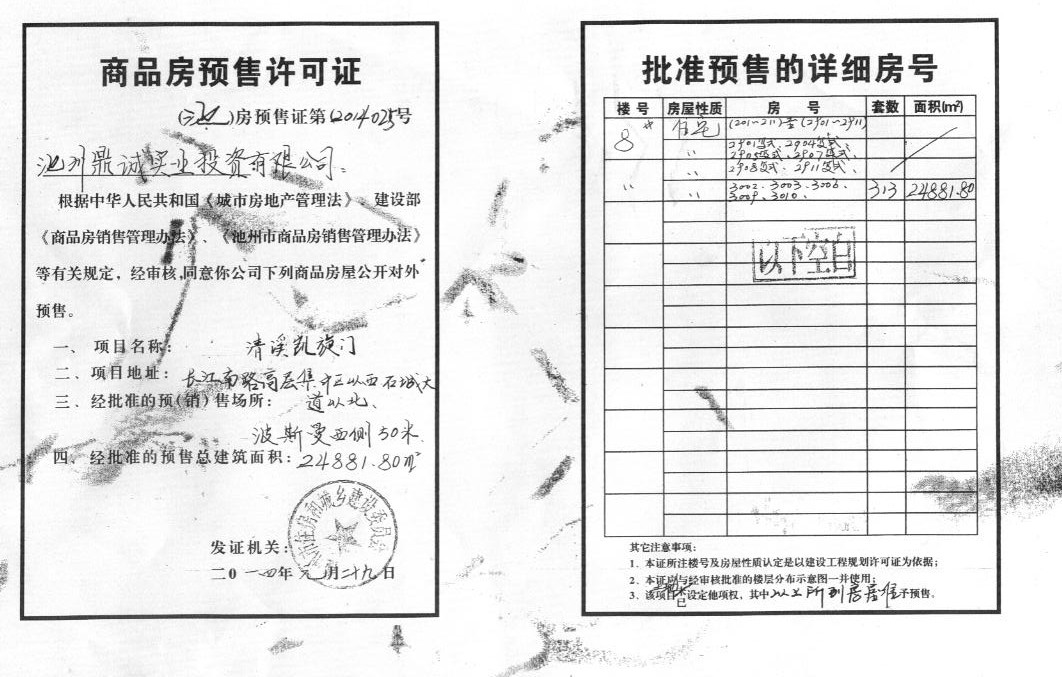 商品房预售许可证
房预售证第(2014025)号
池州鼎诚实业投资有限公司:
根据中华人民共和国《城市房地产管理法》、建设部
《商品房销售管理办法》、《池州市商品房销售管理办法》
等有关规定，经审核,同意你公司下列商品房屋公开对外
预售。
一、项目名称: 清溪凯旋门
二、项目地址: 长江南路高层集中区以西石城大
道以北、
三、经批准的预(销)售场所:
波斯曼西侧50米.
四、经批准的预售总建筑面积: 24881.80㎡
市住房和城乡建设委员会
发证机关:
二0一四年元月二十九日
批准预售的详细房号
楼号 房屋性质 房号 套数 面积(㎡)
8# 住宅 (201~211)至(2901~2911)
〃 2901复式、2904复式、
2905复式、2907复式、
〃 2908复式、2911复式、
〃 〃 3002、3003、3006、 313 24881.80
3009、3010、
以下空白
其它注意事项:
1．本证所注楼号及房屋性质认定是以建设工程规划许可证为依据;
2．本证应与经审核批准的楼层分布示意图一并使用;
3．该项目土地已设定他项权，其中以上所列房屋准予预售。